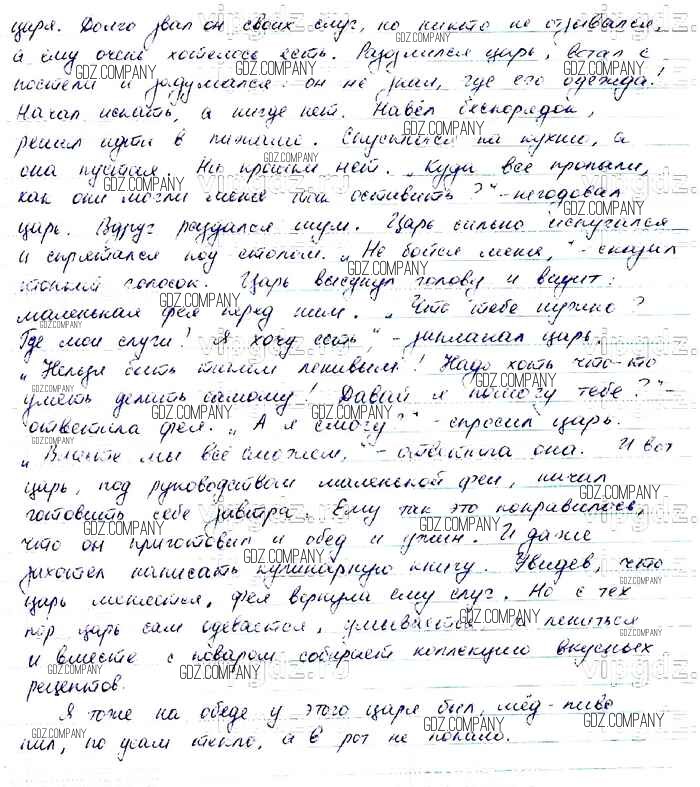 царя. Долго звал он своих слуг, но никто не отзывался,
а ему очень хотелось есть. Разозлился царь, встал с
постели и задумался: он не знал, где его одежда!
Начал искать, а нигде нет. Навёл беспорядок,
решил идти в пижаме. Спустился на кухню, а
она пустая. Ни крошки нет. „Куда все пропали,
как они могли меня так оставить?" - негодовал
царь. Вдруг раздался шум. Царь сильно испугался
и спрятался под столом. „Не бойся меня," - сказал
тонкий голосок. Царь высунул голову и видит:
маленькая фея перед ним. „Что тебе нужно?
Где мои слуги! Я хочу есть," - заплакал царь.
„Нельзя быть таким ленивым! Надо хоть что-то
уметь делать самому! Давай я помогу тебе?" -
ответила фея. „А я смогу?" - спросил царь.
„Вместе мы всё сможем," - ответила она. И вот
царь, под руководством маленькой феи, начал
готовить себе завтра. Ему так это понравилось,
что он приготовил и обед и ужин. И даже
захотел написать кулинарную книгу. Увидев, что
царь меняется, фея вернула ему слуг. Но с тех
пор царь сам одевается, умывается, а ленится
и вместе с поваром собирает коллекцию вкусных
рецептов.
Я тоже на обеде у этого царя был, мёд-пиво
пил, по усам текло, а в рот не попало.
GDZ.COMPANY
vipgdz.ru